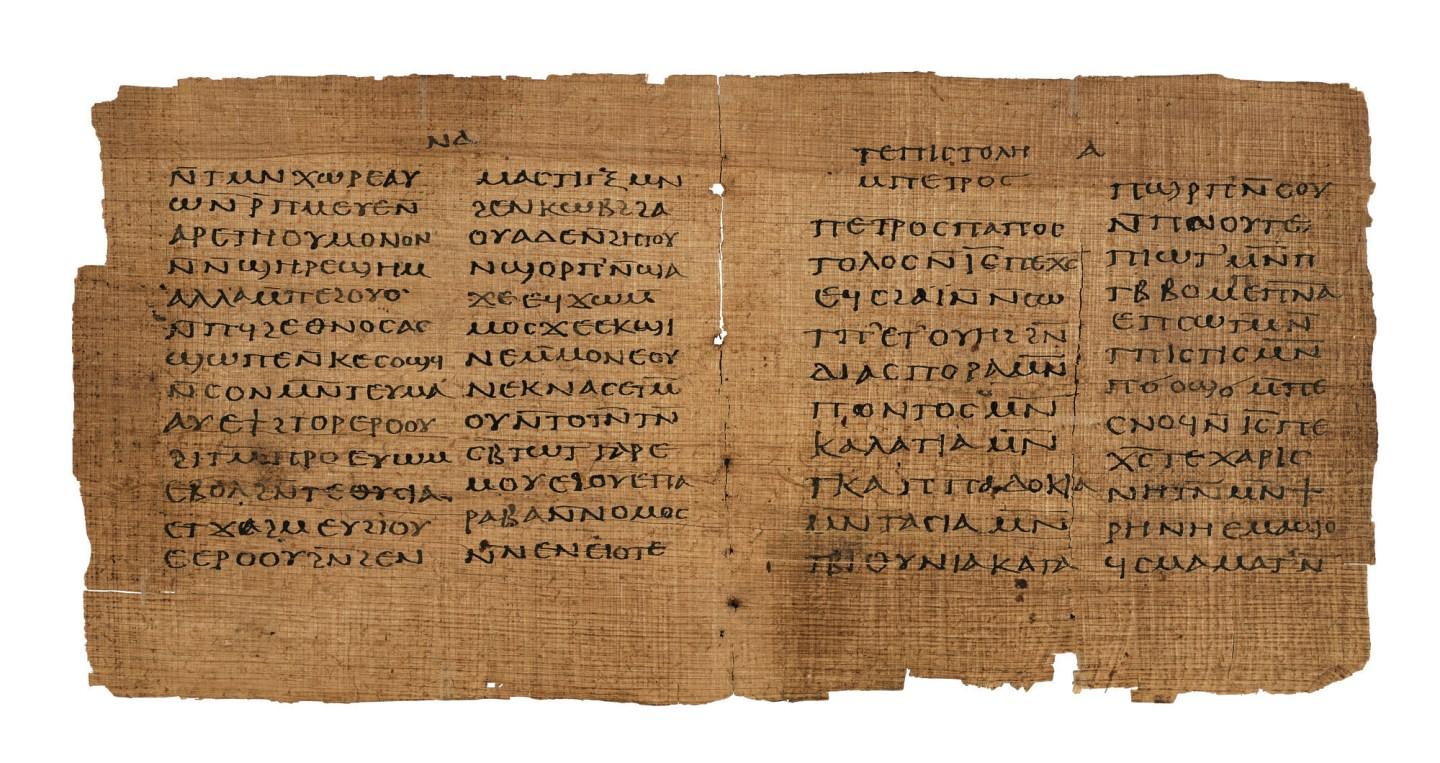 ⲛⲇ
ⲛ̄ⲧⲙⲛⲭⲱⲣⲉⲁⲩ
ⲱⲛ ⲣ̄ⲡⲙⲉⲩⲉⲛ̄
ⲁⲣⲉⲧⲏⲟⲩⲙⲟⲛⲟⲛ
ⲛ̄ⲛϣⲏⲣⲉϣⲏⲙ
ⲁⲗⲗⲁⲙ̄ⲡⲉϩⲟⲩⲟ
ⲛ̄ⲡϥϩⲉⲑⲛⲟⲥⲁⲥ
ϣⲱⲡⲉⲛ̄ⲕⲉⲥⲟϣϥ
ⲛ̄ⲥⲟⲛⲙⲛ̄ⲧⲉⲩⲙⲁ
ⲁⲩⲉϯϩⲧⲟⲣⲉⲣⲟⲟⲩ
ϩⲓⲧⲙ̄ⲡⲣⲟⲉⲩⲱⲙ
ⲉⲃⲟⲗϩⲛ̄ⲧⲉⲑⲩⲥⲓⲁ
ⲉⲧϫⲁϩⲙⲉⲩϩⲓⲟⲩ
ⲉⲉⲣⲟⲟⲩϩⲛϩⲉⲛ
ⲙⲁⲥⲧⲓⲅⲝ ⲙⲛ
ϩⲉⲛⲕⲱⲃϩϩⲁ
ⲟⲩⲁⲇⲉⲛϩⲏⲧⲟⲩ
ⲛϣⲟⲣⲡ'ⲛ̄ϣⲁ
ϫⲉⲉϥϫⲱⲙ
ⲙⲟⲥϫⲉⲉⲕϣⲓ
ⲛⲉⲙ̄ⲙⲟⲛⲉⲟⲩ
ⲛⲉⲕⲛⲁⲥⲉⲧⲙ
ⲟⲩⲛ̄ⲧⲟⲧⲛ̄ⲧⲛ
ⲥⲃ̄ⲧⲱⲧ ⲅⲁⲣⲉ
ⲙⲟⲩⲉϩⲟⲩⲉⲡⲁ
ⲣⲁⲃⲁⲛⲛⲟⲙⲟⲥ
ⲛ̄ⲛⲉⲛⲉⲓⲟⲧⲉ
ⲧⲉⲡⲓⲥⲧⲟⲗⲏ ⲁ
ⲙⲡⲉⲧⲣⲟⲥ
ⲡⲉⲧⲣⲟⲥⲡⲁⲡⲟⲥ
ⲧⲟⲗⲟⲥⲛ̄ⲓ̅ⲥ̅ⲡⲉⲭⲥ
ⲉϥⲥϩⲁⲓ̈ⲛ̄ⲛⲥⲱ
ⲧⲡ'ⲉⲧ'ⲟⲩⲏϩϩⲛ
ⲇⲓⲁⲥⲡⲟⲣⲁⲙ̅ⲛ̅
ⲡⲡⲟⲛⲧⲟⲥⲙ̅ⲛ̅
ⲕⲁⲗⲁⲧⲓⲁ ⲙ̅ⲛ̅
ⲧⲕⲁⲡⲡⲁⲇⲟⲕⲓⲁ
ⲙⲛⲧⲁⲥⲓⲁ ⲙ̅ⲛ̅
ⲧⲃⲓⲑⲩⲛⲓⲁⲕⲁⲧⲁ
ⲡϣⲣⲡⲛ̄ⲥⲟⲩ
ⲛ̄ⲡⲛⲟⲩⲧⲉ
ⲡⲓⲱⲧ'ⲙ̅ⲛ̅ⲡ
ⲧⲃ̄ⲃⲟⲙ̄ⲉⲡ̅ⲛ̅ⲁ̅
ⲉⲡⲥⲱⲧⲙⲛ̄
ⲧⲡⲓⲥⲧⲓⲥⲙ̅ⲛ̅
ⲡϭⲟϣϭϣ ⲙ̄ⲡⲉ
ⲥⲛⲟϥⲛ̄ ⲓ̅ⲥ̅ⲡⲉ
ⲭ̅ⲥ̅ⲧⲉⲭⲁⲣⲓⲥ
ⲛⲏⲧⲛ̄ⲙⲛ̄ϯ
ⲣⲏⲛⲏⲉⲙⲁϣⲟ
ϥⲥⲙⲁⲙⲁⲧ'ⲛ